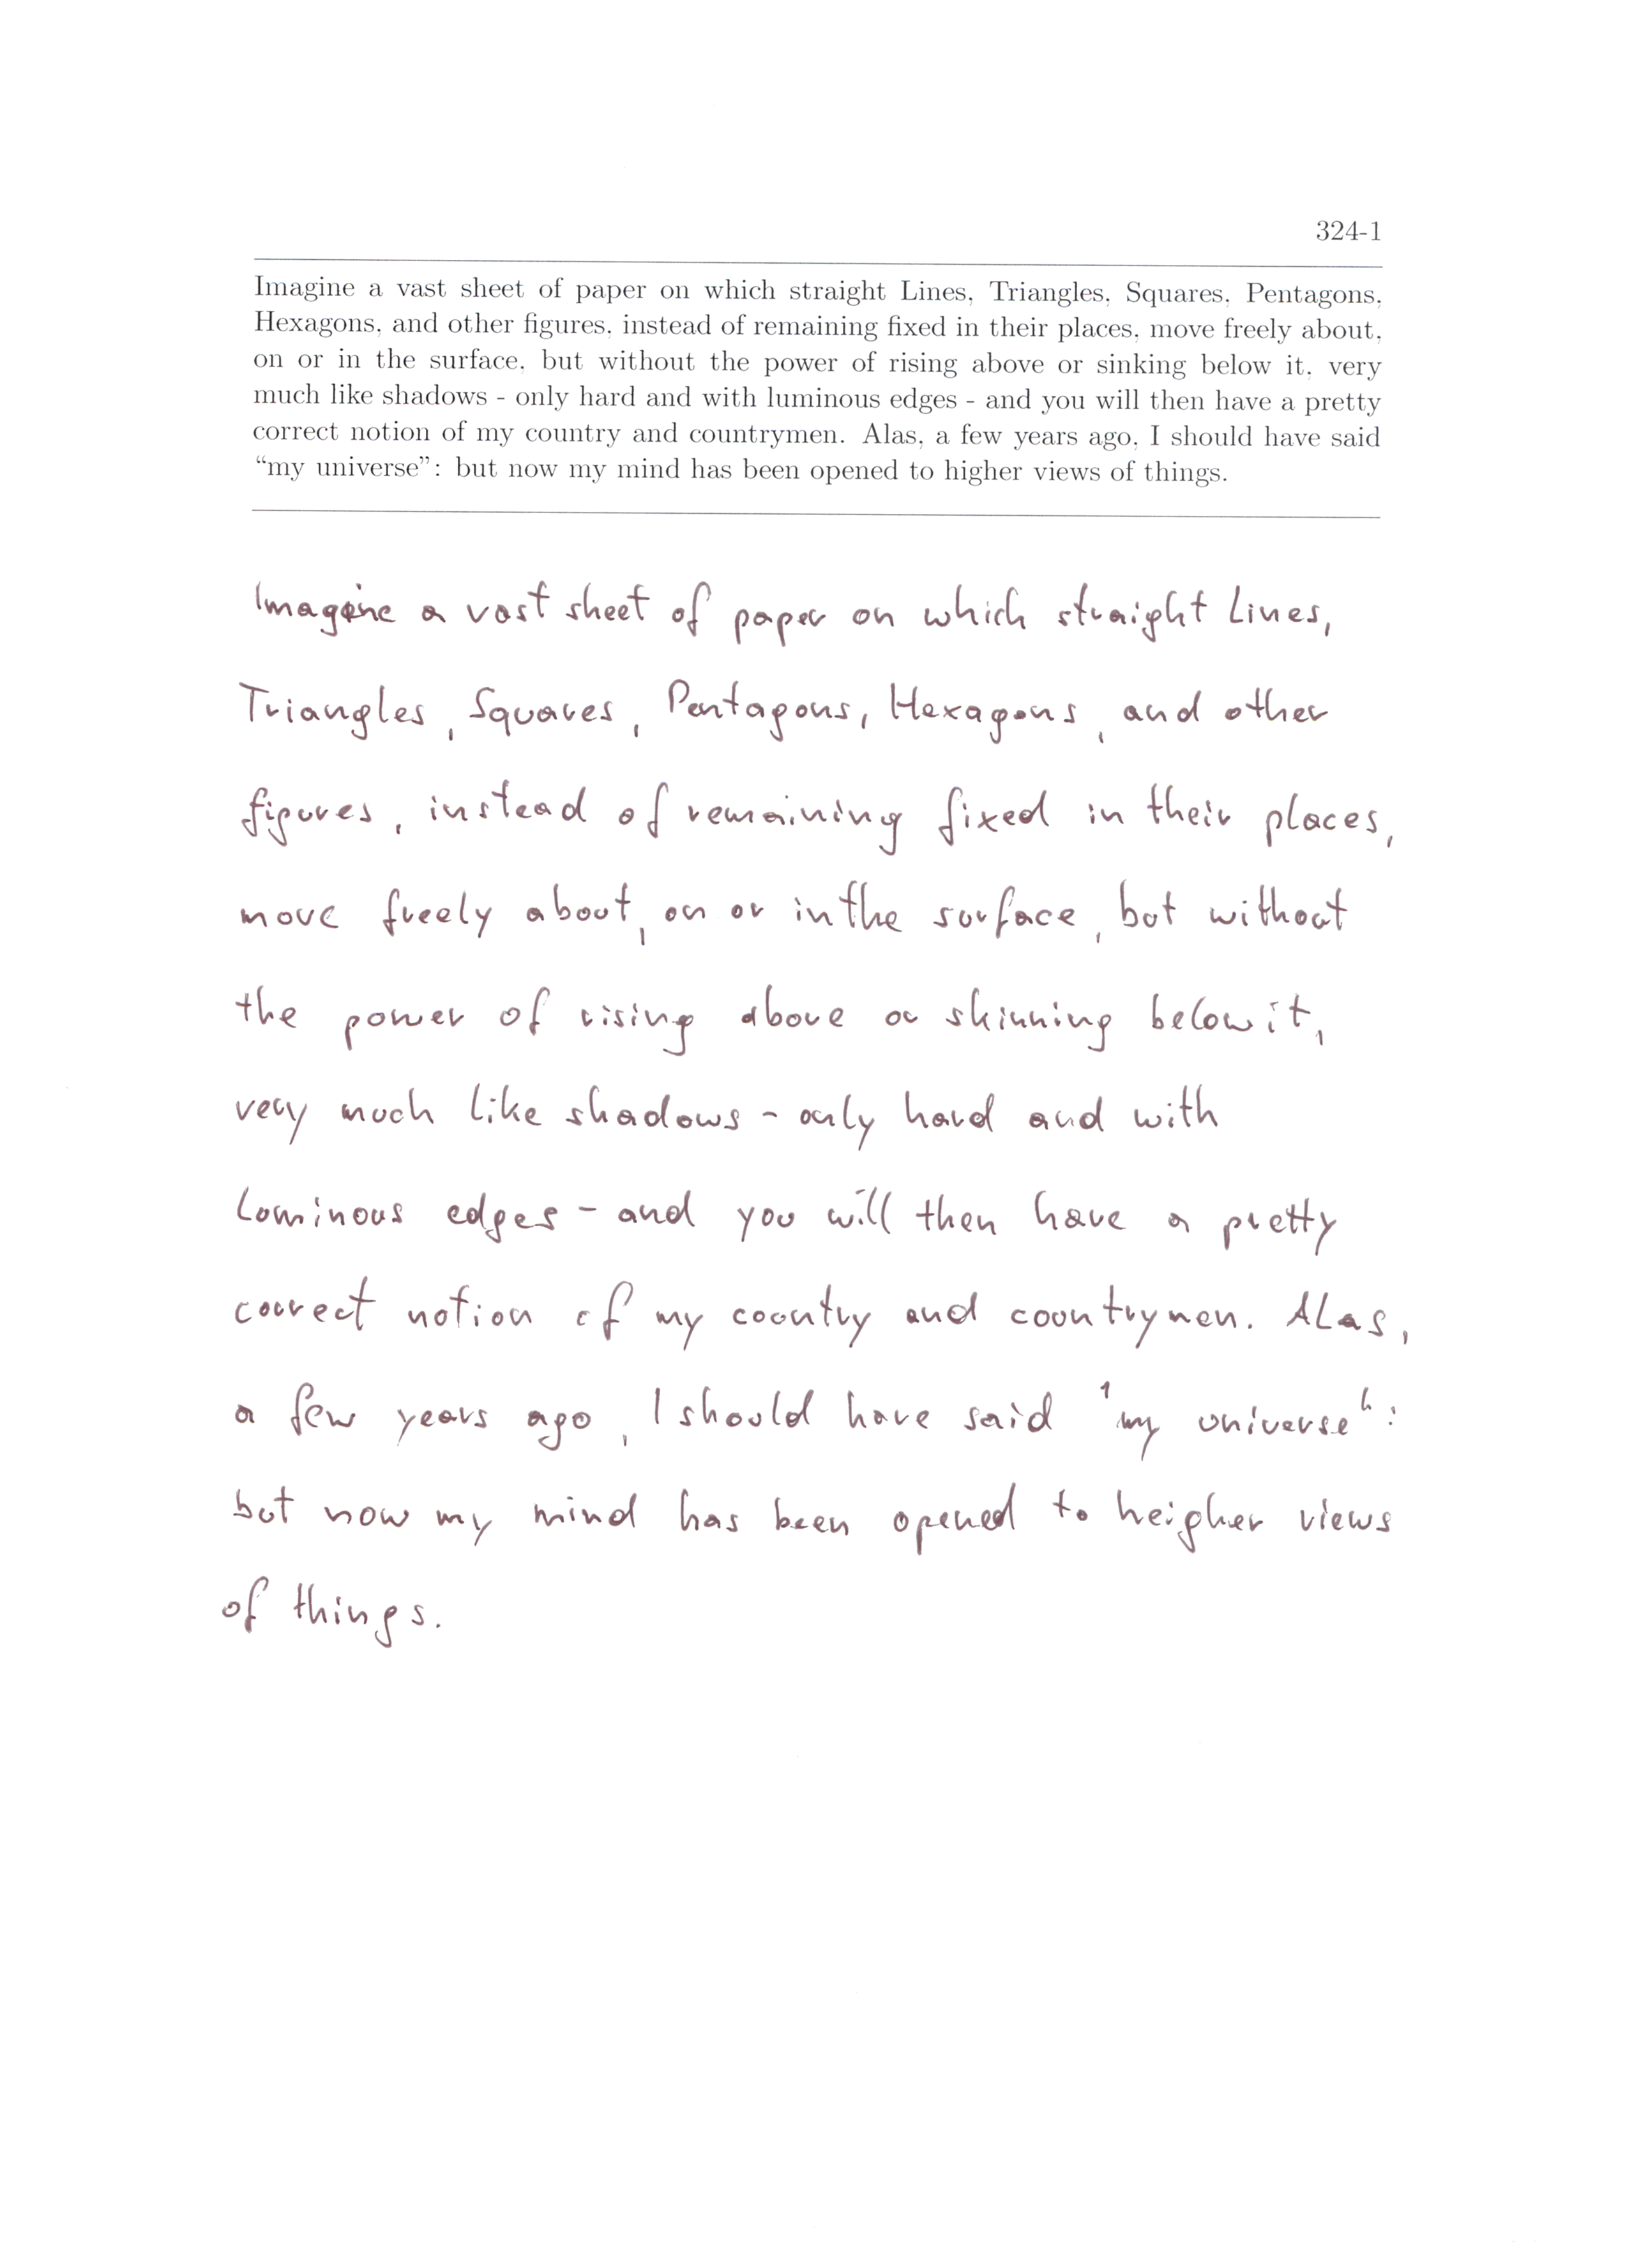 324-1
Imagine a vast sheet of paper on which straight Lines, Triangles, Squares, Pentagons,
Hexagons, and other figures, instead of remaining fixed in their places, move freely about,
on or in the surface, but without the power of rising above or sinking below it, very
much like shadows - only hard and with luminous edges - and you will then have a pretty
correct notion of my country and countrymen. Alas, a few years ago, I should have said
“my universe”: but now my mind has been opened to higher views of things.
Imagine a vast sheet of paper on which straight Lines,
Triangles, Squares, Pentagons, Hexagons, and other
figures, instead of remaining fixed in their places,
move freely about, on or in the surface, but without
the power of rising above or skinning below it,
very much like shadows - only hard and with
luminous edges - and you will then have a pretty
correct notion of my country and countrymen. Alas,
a few years ago, I should have said "my universe":
but now my mind has been opened to heigher views
of things.